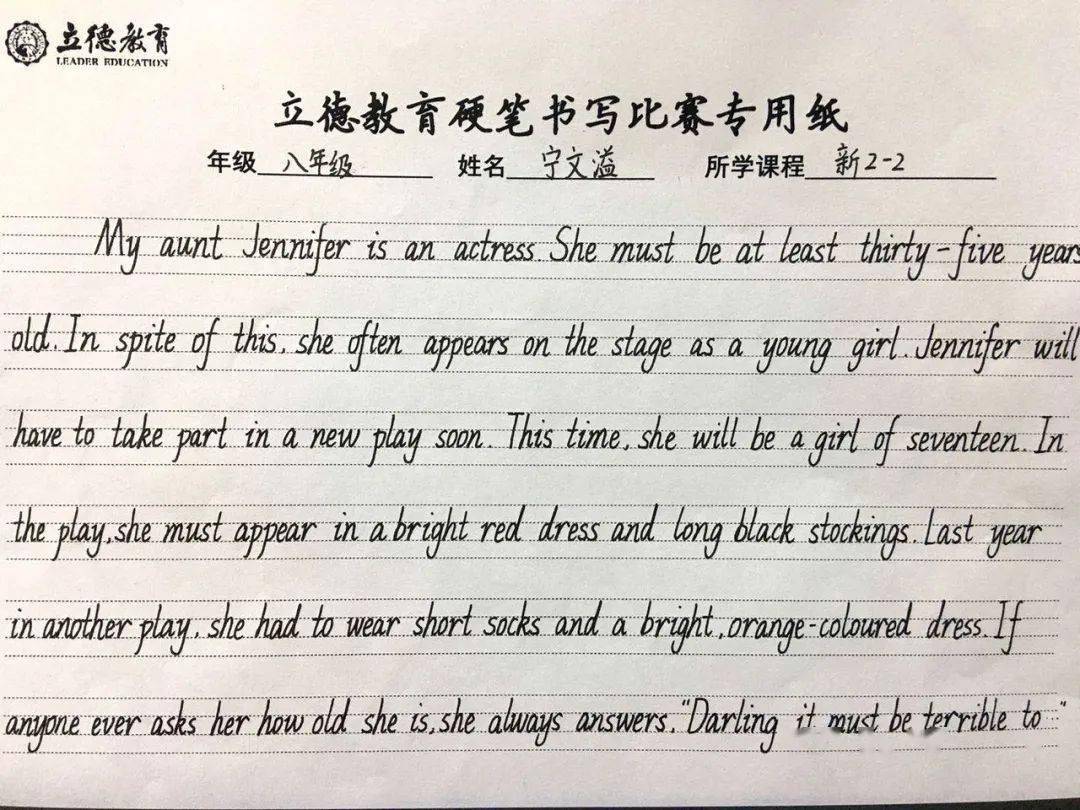 立德教育
LEADER EDUCATION
立德教育硬笔书写比赛专用纸
年级 八年级 姓名 宁文溢 所学课程 新2-2
My aunt Jennifer is an actress She must be at least thirty-five years
old. In spite of this, she often appears on the stage as a young girl. Jennifer will
have to take part in a new play soon. This time, she will be a girl of seventeen. In
the play, she must appear in a bright red dress and long black stockings. Last year
in another play, she had to wear short socks and a bright, orange-coloured dress. If
anyone ever asks her how old she is, she always answers, "Darling it must be terrible to "